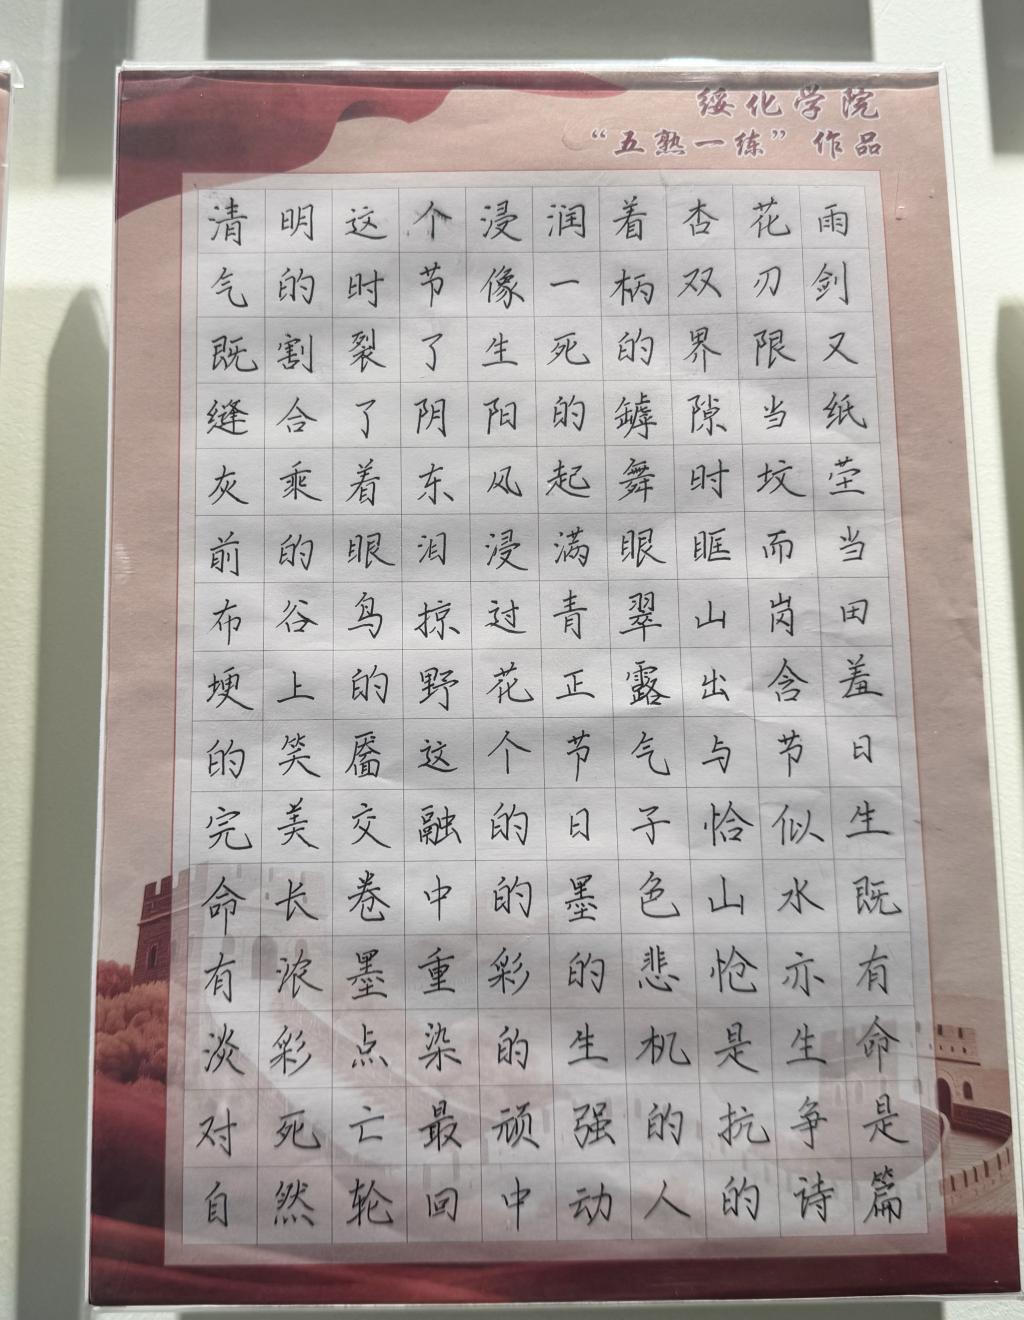 绥化学院
“五熟一练”作品
清明这个浸润着杏花雨
气的时节像一柄双刃剑
既割裂了生死的界限又
缝合了阴阳的罅隙当纸
灰乘着东风起舞时坟茔
前的眼泪浸满眼眶而当
布谷鸟掠过青翠山岗田
埂上的野花正露出含羞
的笑靥这个节气与节日
完美交融的日子恰似生
命长卷中的墨色山水既
有浓墨重彩的悲怆亦有
淡彩点染的生机是生命
对死亡最顽强的抗争是
自然轮回中动人的诗篇